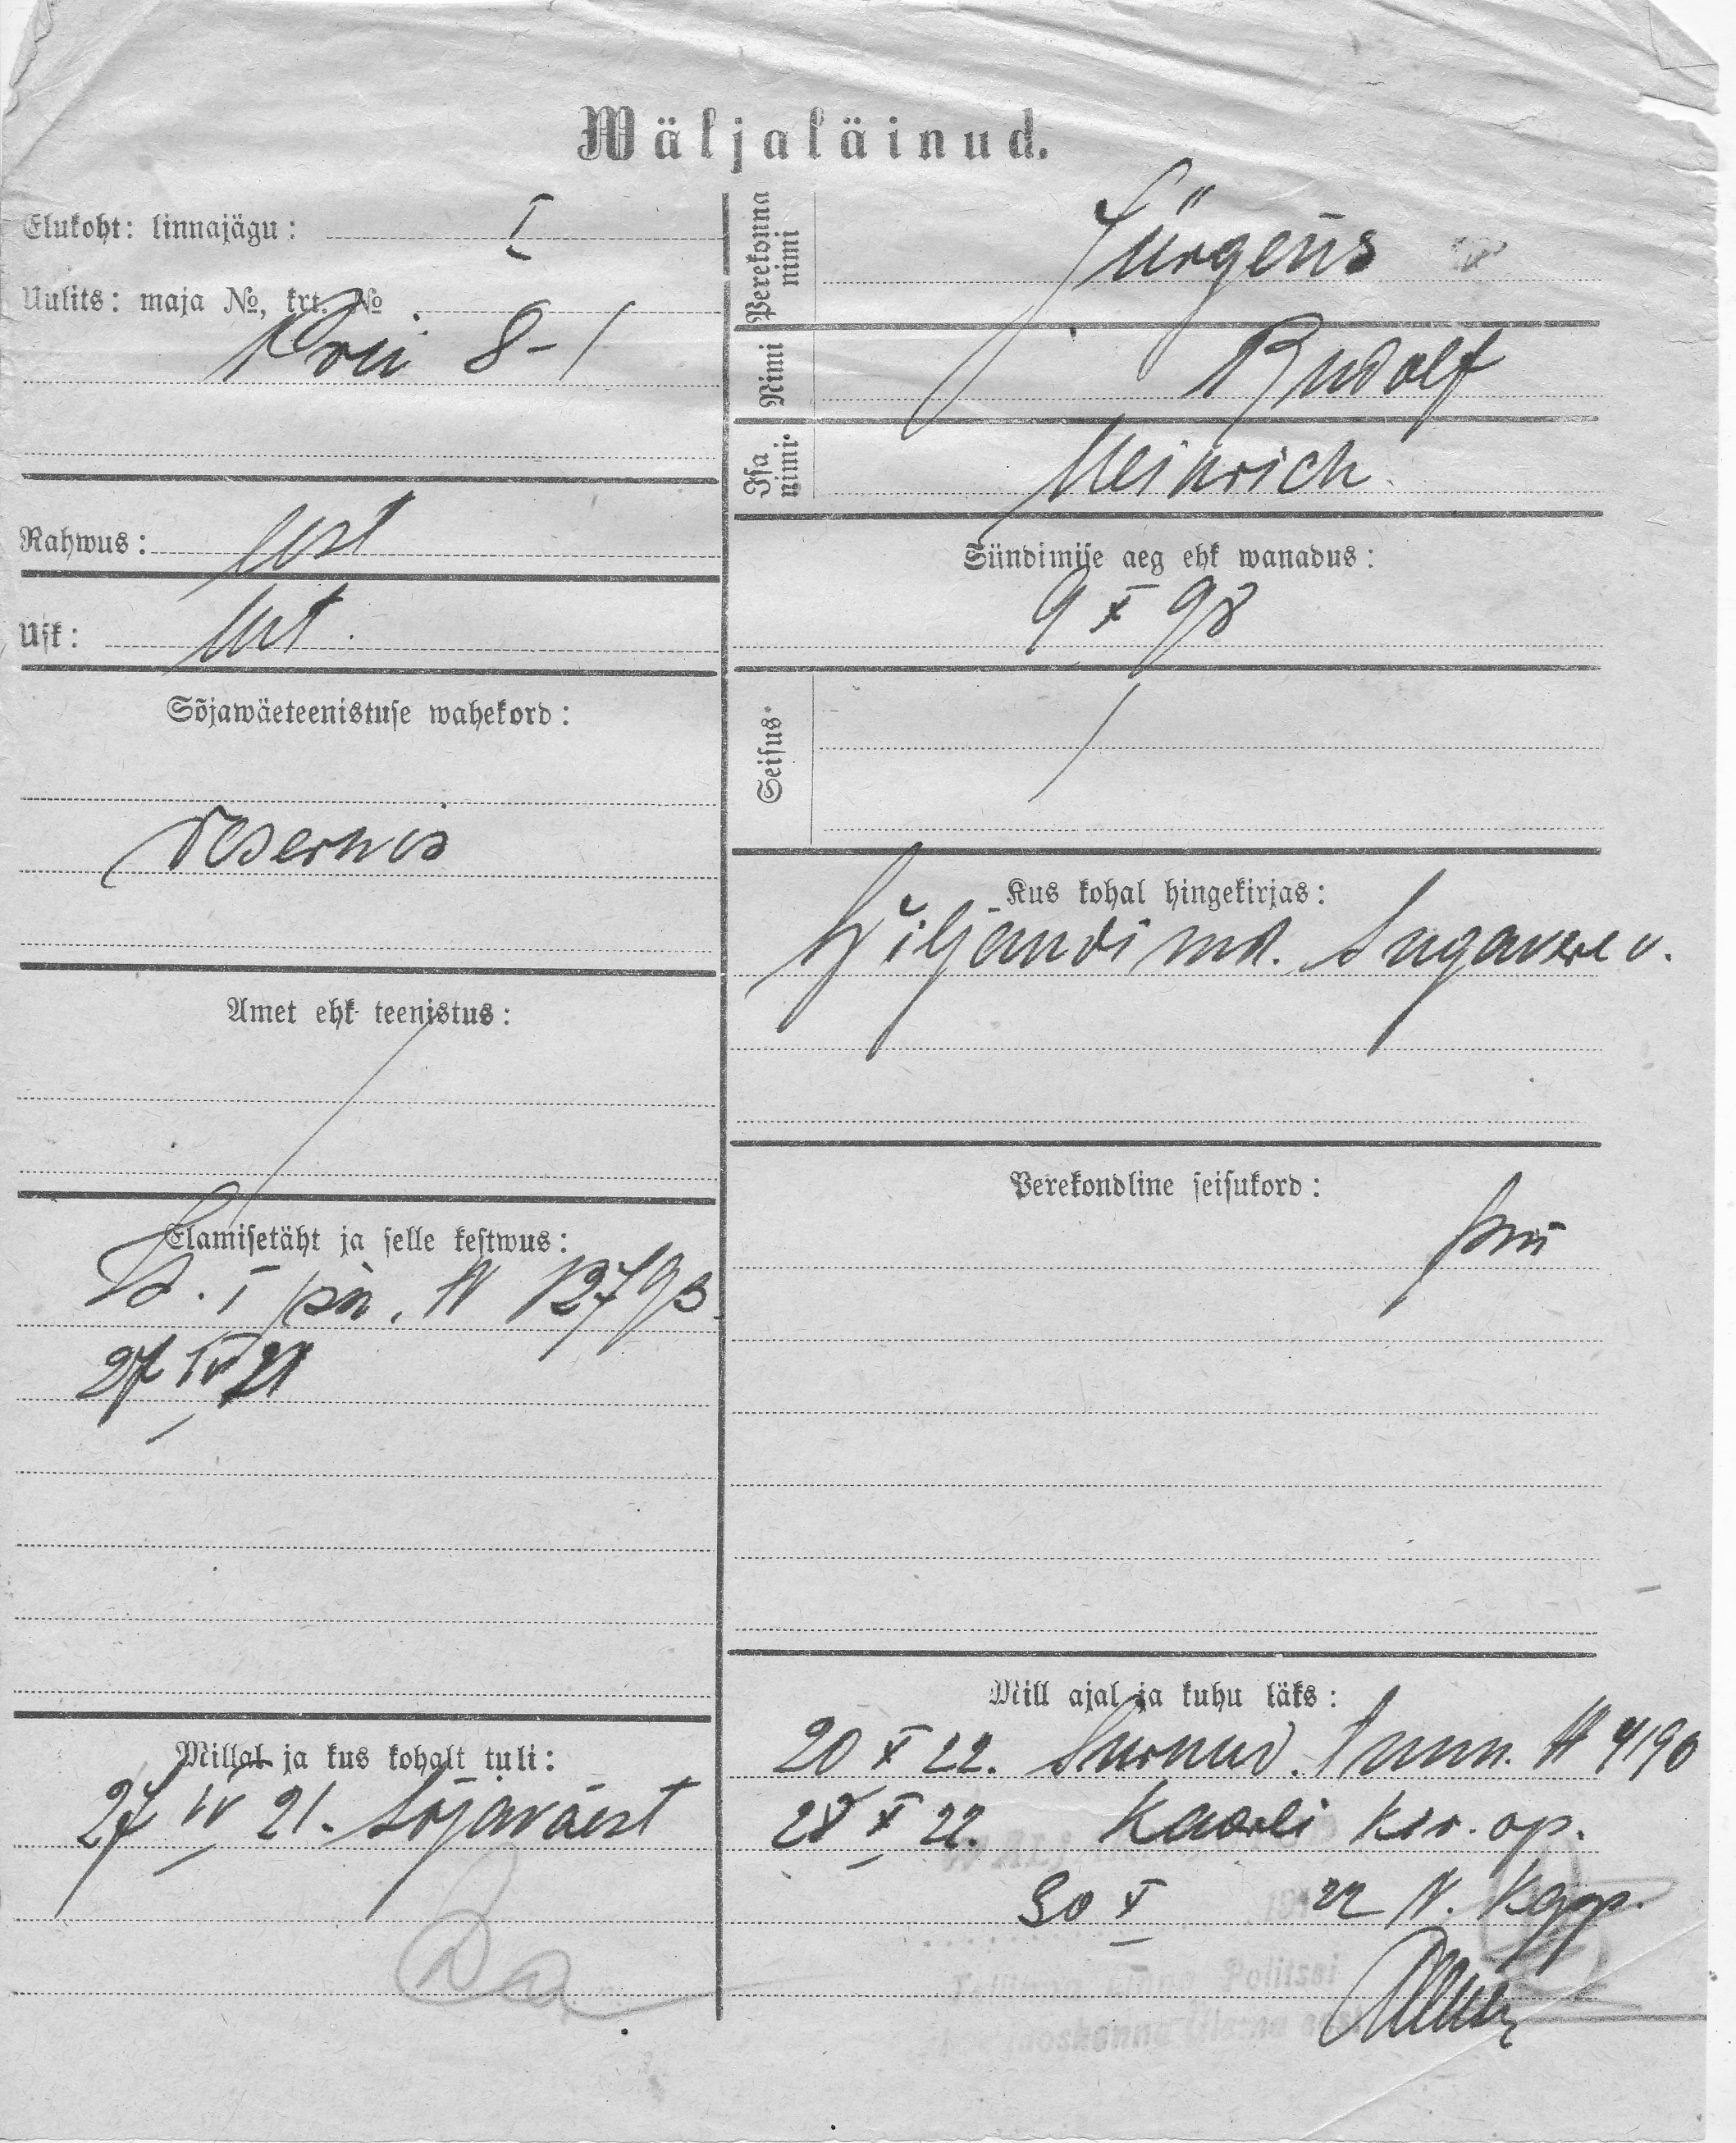 Wäljaläinud.
Elukoht: linnajägu: I
Uulits: maja №, krt. №
8-1
Rahwus: eest
Usk: lut.
Sõjawäeteenistuse wahekord:
reservis
Amet ehk teenistus:
Elamisetäht ja selle kestwus:
I jsk. N 12793
27 IV 21
Millal ja kus kohalt tuli:
27 IV 21. Sõjaväest
Perekonna nimi Jürgens
Nimi Rudolf
Isa nimi Heinrich
Sündimise aeg ehk wanadus:
9 X 98
Seisus
Kus kohal hingekirjas:
Wiljandi mk. v.
Perekondline seisukord:
Mill ajal ja kuhu läks:
20 X 22. Surnud. N 4190
28 X 22. Kaarli kir. op.
30 X 22 N.
Tallinna Linna Politsei